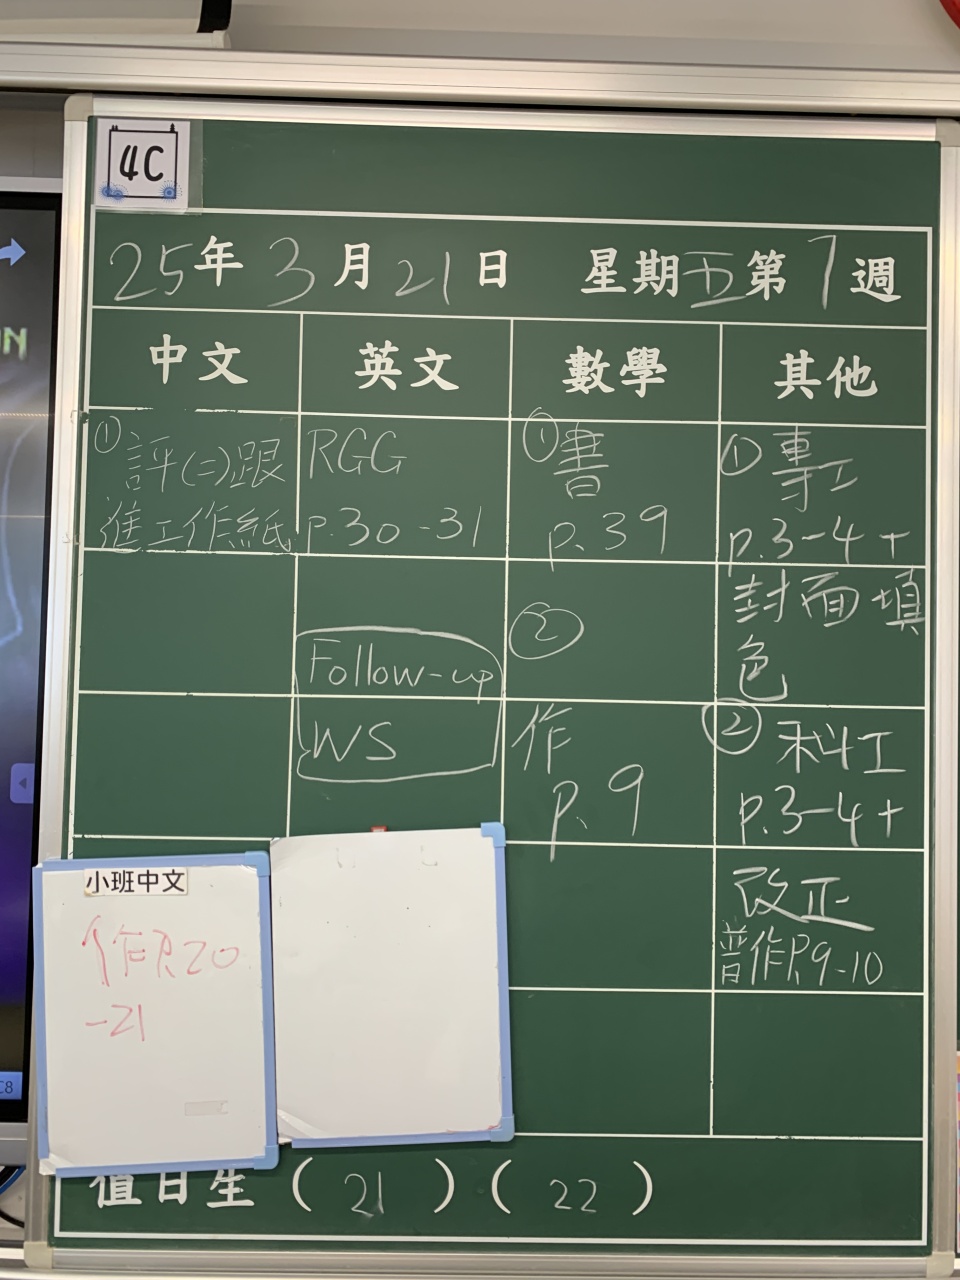 4C
25年3月21日 星期五第7週
中文 英文 數學 其他
①評(二)跟
進工作紙
RGG
p.30-31
Follow-up
WS
①書
p.39
②
作
p.9
①專工
p.3-4+
封面填
色
②科工
p.3-4+
改正
普作P.9-10
小班中文
作P.20
-21
值日生(21)(22)
C8